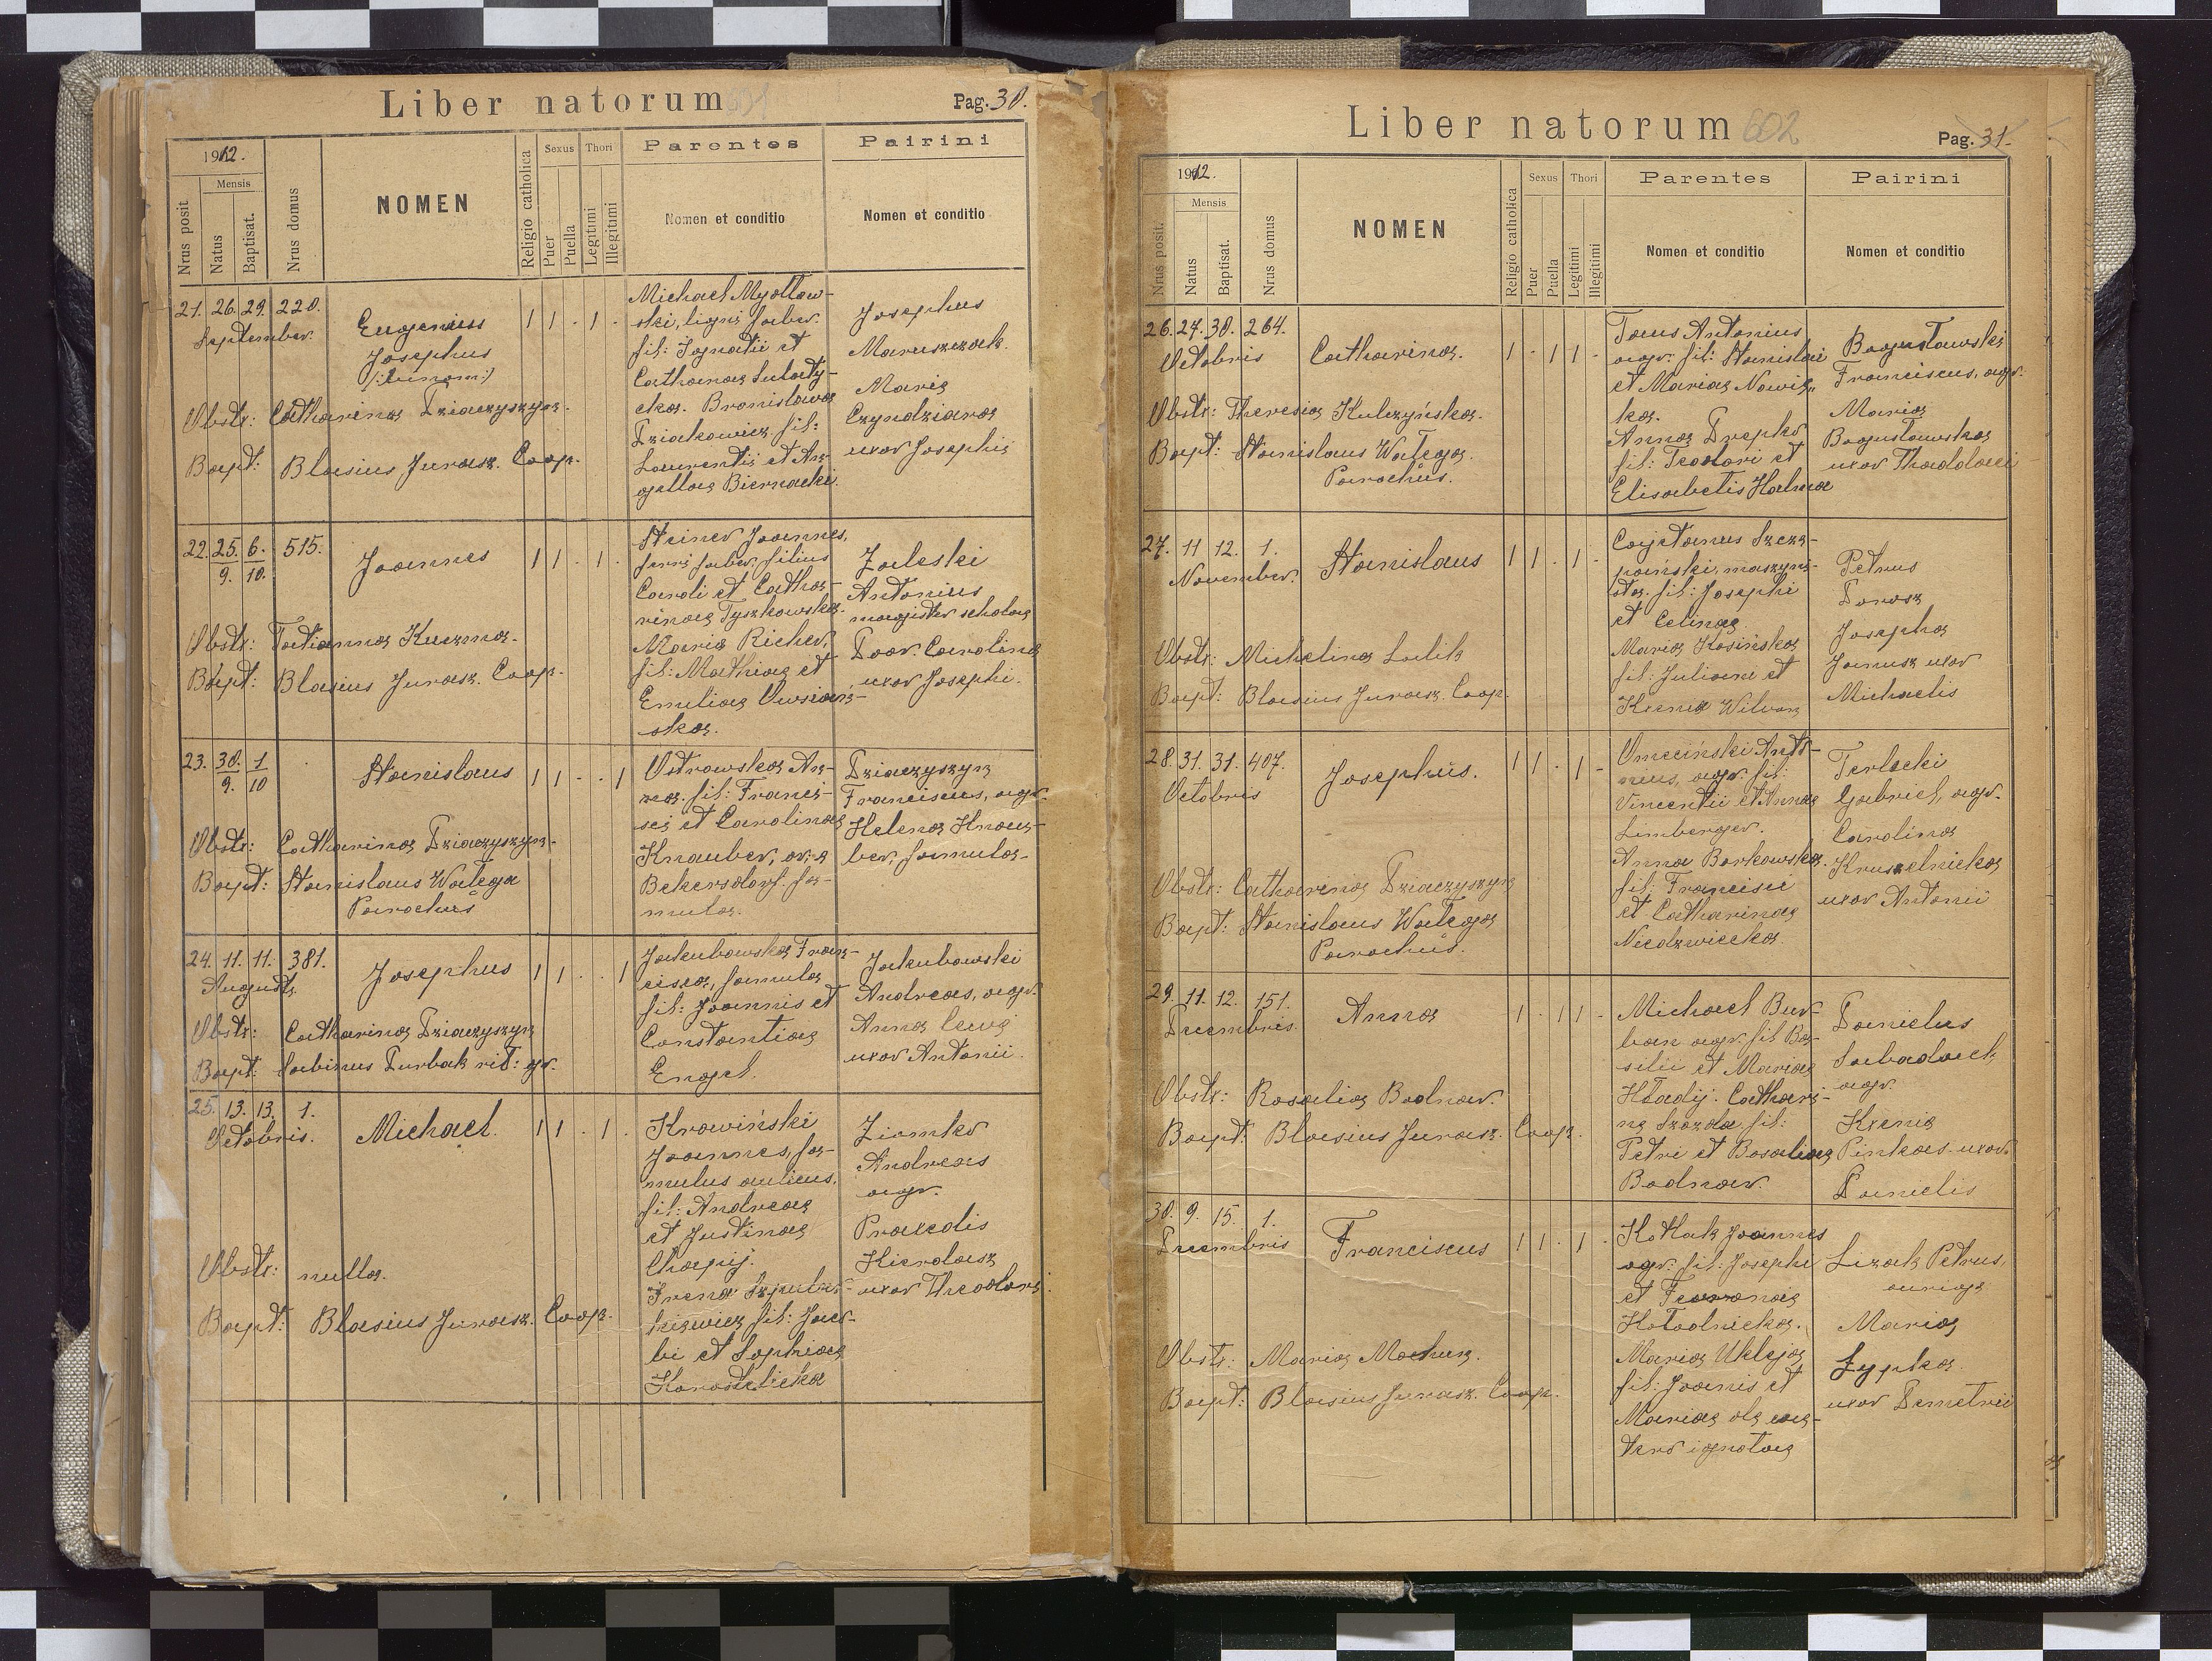 Liber natorum
Pag. 30.
1912.
Nrus posit
Mensis
Natus
Baptisat.
Nrus domus
NOMEN
Religio catholica
Sexus
Puer
Puella
Thori
Legitimi
Illegitimi
Parentes
Nomen et conditio
Pairini
Nomen et conditio
21. 26. 29. 220.
September.
Eugenius
Josephus
/:binom:/
1 1 . 1 .
Michael
ski, ligni faber.
fil: Ignatii et
Bronislava
Dziatkowicz fil:
Laurentii et An-
gellae Biernacki.
Josephus
Maruszczak.
Maria
Czyndziara
uxor Josephi
Obstr: Catharina Dziaczyszyn.
Bapt: Blasius Jurasz. Coop.
22. 25. 6. 515.
9. 10.
Joannes
1 1 . 1 .
Steiner Joannes,
ferri faber, filius
Caroli et Catha-
rinae Tyszkowska.
Maria Richer,
fil: Mathiae et
Emiliae Owsian-
ska.
Zaleski
Antonius
magister schola
Carolina
uxor Josephi.
Obstr: Tatianna Kuczma.
Bapt: Blasius Jurasz. Coop.
23. 30. 1
9. 10
Stanislaus
1 1 . . 1
Ostrowska An-
na. fil: Franci-
sci et Carolinae
Knauber,
Bekersdorf. fa-
mula.
Dziaczyszyn
Franciscus, agr.
Helena Knau-
ber, famula.
Obstr: Catharina Dziaczyszyn.
Bapt: Stanislaus Watega
Parochus
24. 11. 11. 381.
Augusti.
Josephus
1 1 . . 1
Jakubowska Fran-
cisca, famula
fil: Joannis et
Constantiae
Engel.
Jakubowski
Andreas, agr.
Anna
uxor Antonii.
Obstr: Catharina Dziaczyszyn
Bapt: Sabinus Durbak rit: gr.
25. 13. 13. 1.
Octobris.
Michael.
1 1 . 1 .
Krowiński
Joannes, fa-
mulus aulicus,
fil: Andreae
et Justinae
Irena
fil: Jaco-
bi et Sophiae
Ziomko
Andreas
agr.
Praxedis
uxor Theodori.
Obstr: nulla.
Bapt: Blasius Jurasz. Coop.
Liber natorum 602
Pag. 31.
1912.
Nrus posit.
Mensis
Natus
Baptisat.
Nrus domus
NOMEN
Religio catholica
Sexus
Puer
Puella
Thori
Legitimi
Illegitimi
Parentes
Nomen et conditio
Pairini
Nomen et conditio
26. 27. 30. 264.
Octobris
Catharina.
1 . 1 1 .
Antonius
agr. fil: Stanislai
et Mariae Nowic-
ka.
Anna Drepko
fil: Teodori et
Elisabetis Halma
Bogusławski
Franciscus, agr.
Maria
Bogusławska
uxor Thaddaei
Obstr: Theresia Kulczyńska.
Bapt: Stanislaus Watega.
Parochus.
27. 11 12. 1.
November.
Stanislaus
1 1 . 1 .
Cajetanus Szcze-
panski, maszyni-
sta. fil: Josephi
et Celinae
Maria Kosińska
fil: Juliani et
Petrus
Josepha
Janusz uxor
Michaelis
Obstr: Michelina Lulik
Bapt: Blasius Jurasz. Coop.
28. 31. 31. 407.
Octobris
Josephus.
1 1 . 1 .
Omeciński Anto-
nius, agr. fil:
Vincentii et Annae
Limberger.
Anna Borkowska.
fil: Francisci
et Catharinae
Niedzwiecka.
Terlecki
Gabriel, agr.
Carolina
Kruszelnicka
uxor Antonii
Obstr: Catharina Dziaczyszyn
Bapt: Stanislaus Watega
Parochus.
29. 11. 12. 151.
Decembris.
Anna
1 . 1 1 .
Michael Bur-
ban agr. fil Ba-
silii et Mariae
Hładij. Cathari-
na fil:
Petri et Rosaliae
Bodnar.
Danielus
agr.
Pinkas uxor
Danielis
Obstr: Rosalia Bodnar.
Bapt: Blasius Jurasz. Coop.
30. 9. 15. 1.
Decembris
Franciscus
1 1 . 1 .
Kotlak Joannes
agr. fil: Josephi
et
Hołodnicka.
Maria Ukleja
fil: Joanis et
Mariae de cae-
tero ignotae
Lizak Petrus,
auriga
Maria
Zypka.
uxor Demetrii
Obstr: Maria
Bapt: Blasius Jurasz. Coop.